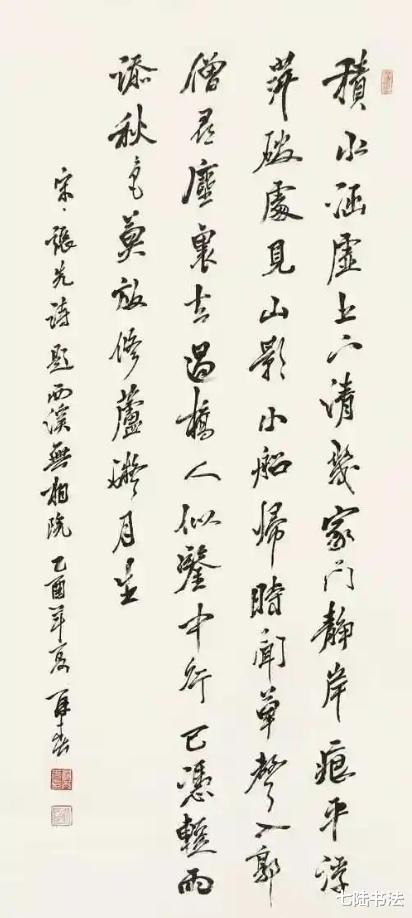 積水涵虛上下清幾家門靜岸痕平浮
萍破處見山影小船歸時聞草聲入郭
僧尋塵裏去過橋人似鑒中行已憑輕雨
添秋色莫放修蘆礙月生
宋、張先詩題西溪無相院 乙酉年夏
七陆书法